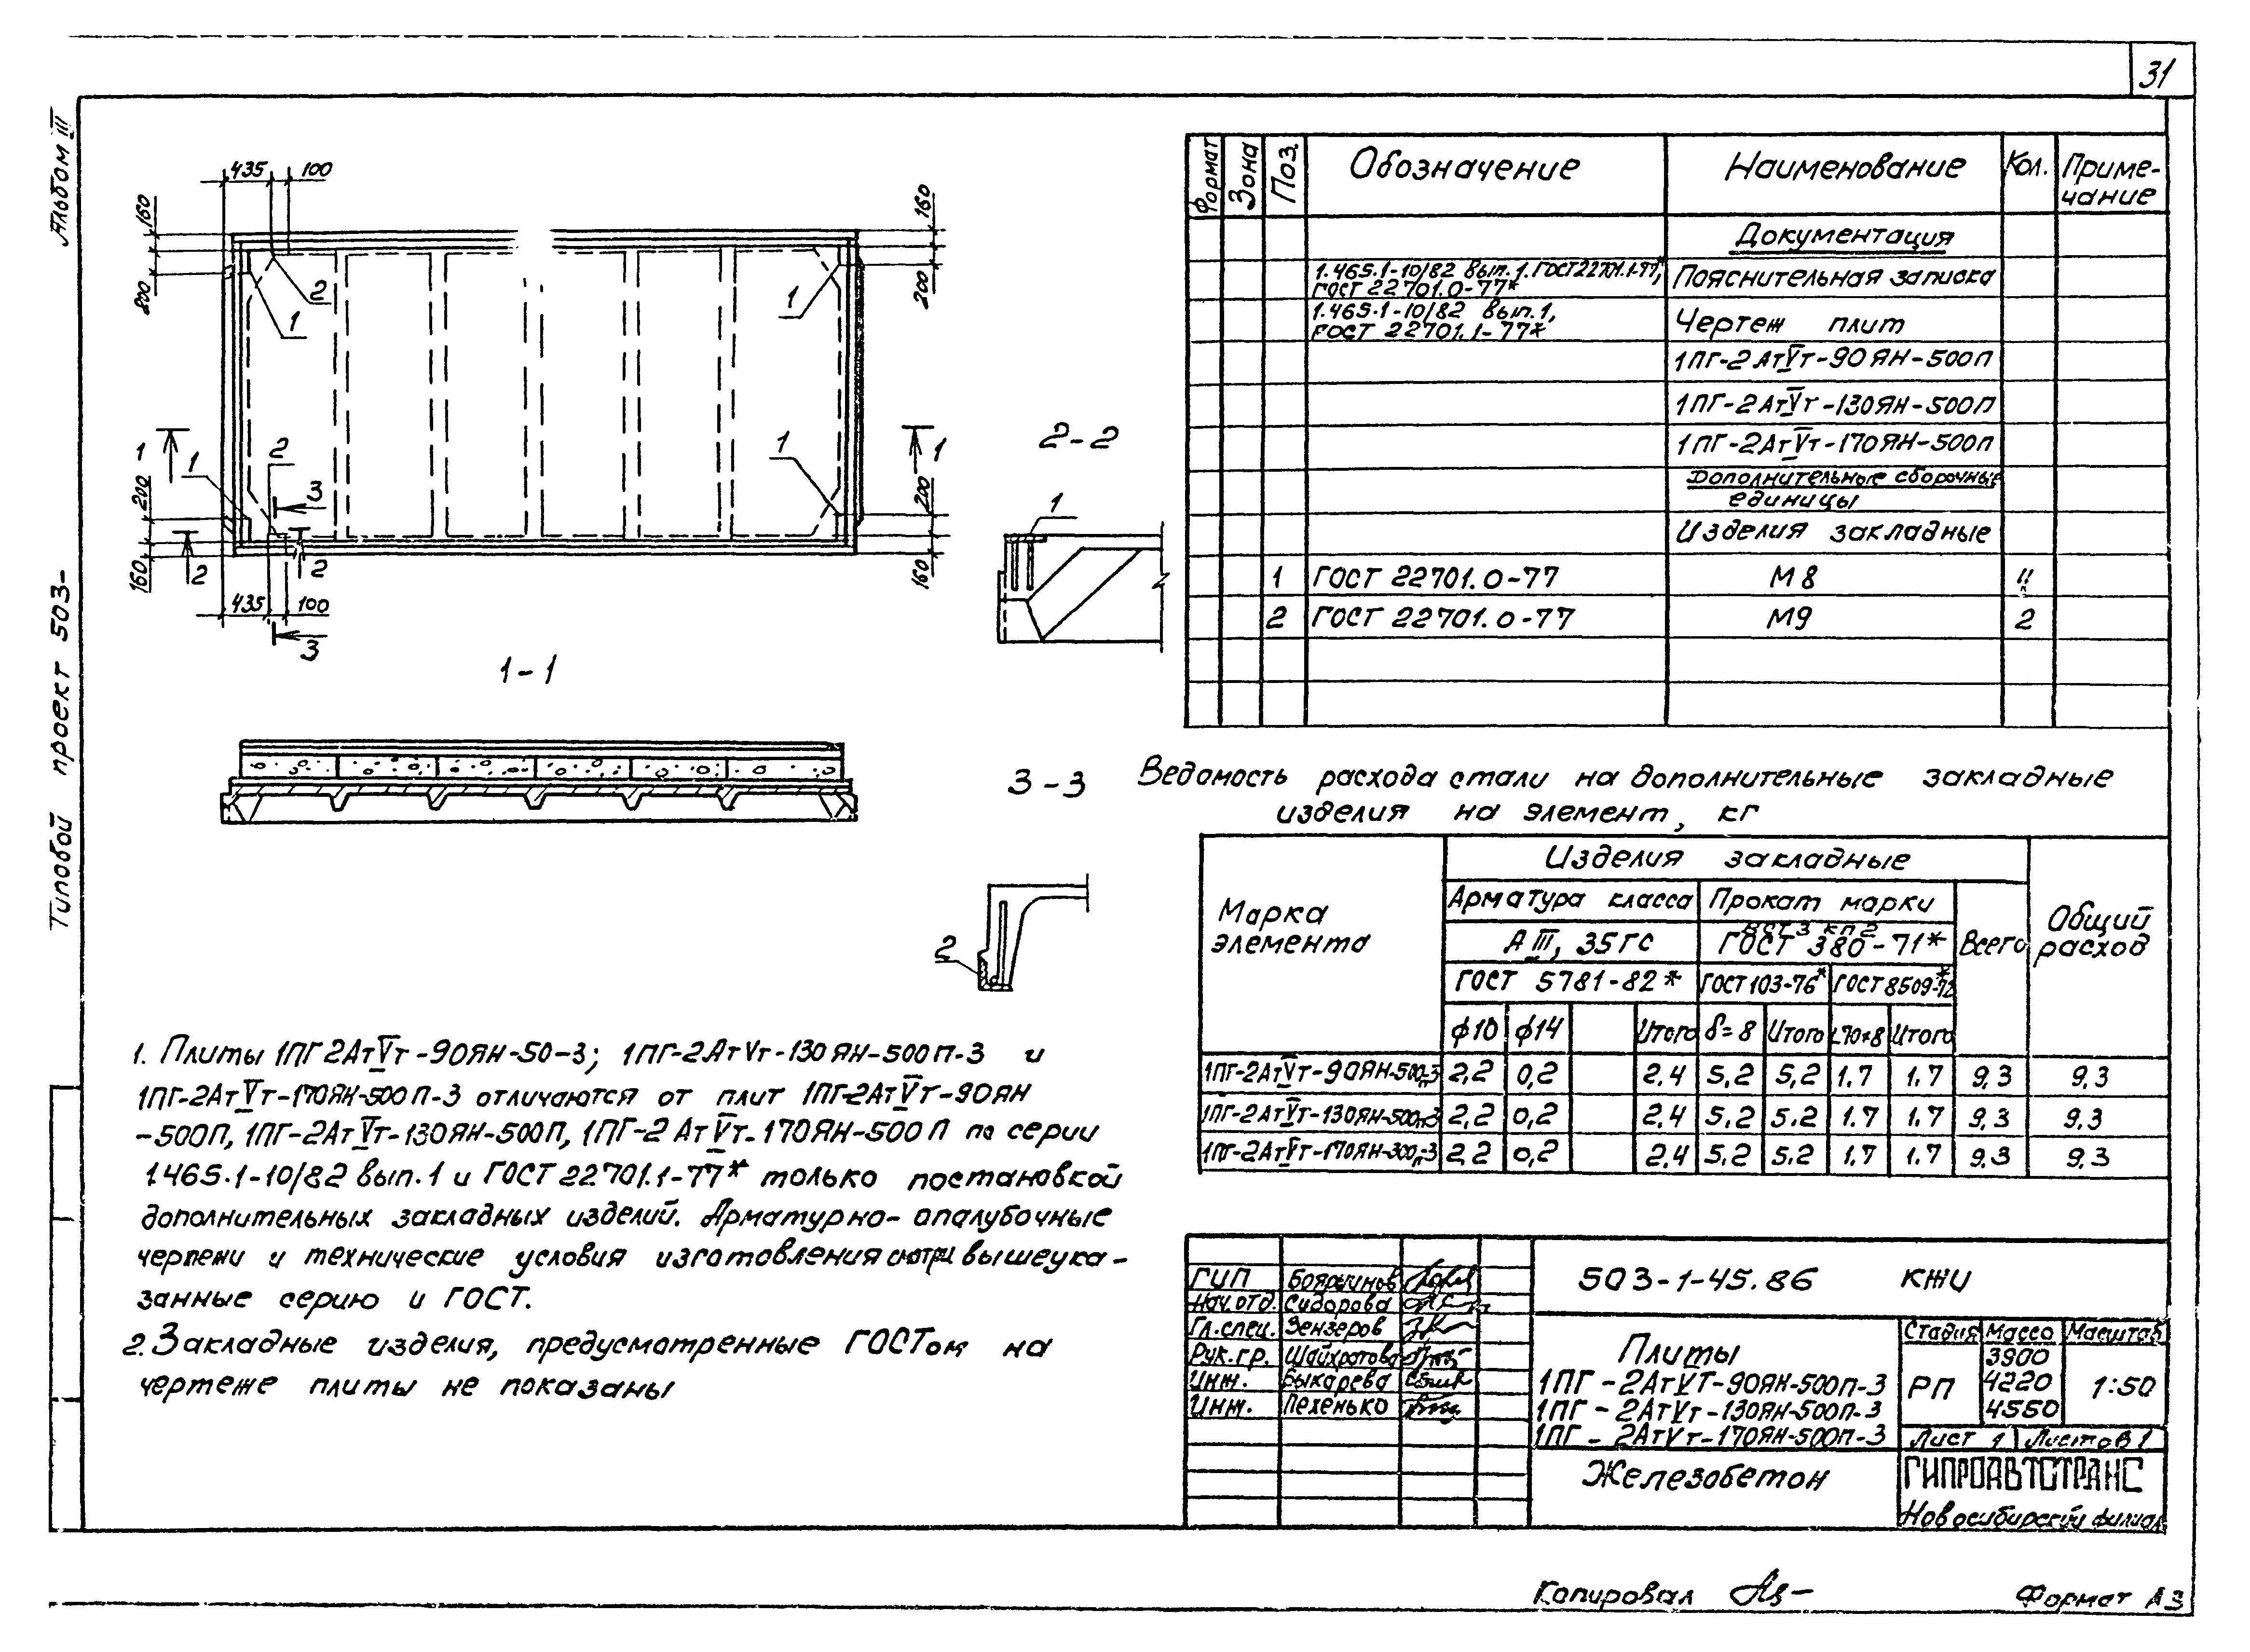 31
Альбом III
Типовой проект 503-
435 100
160
200
160
200
2
1
1
1
1
2
3
1
1
200
160
2
2
200
160
435 100
3
1-1
2-2
1
3-3
2
Формат Зона Поз. Обозначение Наименование Кол. Приме-
чание
Документация
1.465.1-10/82 Вып.1. ГОСТ 22701.1-77*, Пояснительная записка
ГОСТ 22701.0-77*
1.465.1-10/82 Вып.1, Чертеж плит
ГОСТ 22701.1-77*
1ПГ-2АтV̅т-90ЯН-500П
1ПГ-2АтV̅т-130ЯН-500П
1ПГ-2АтV̅т-170ЯН-500П
Дополнительные сборочные
единицы
Изделия закладные
1 ГОСТ 22701.0-77 М8
2 ГОСТ 22701.0-77 М9 2
Ведомость расхода стали на дополнительные закладные
изделия на элемент, кг
Марка
элемента
Изделия закладные
Общий
расход
Арматура класса Прокат марки Всего
АIII, 35ГС Вст3 кп2
ГОСТ 380-71*
ГОСТ 5781-82* ГОСТ 103-76* ГОСТ 8509-72*
ф10 ф14 Итого δ=8 Итого L70×8 Итого
1ПГ-2АтV̅т-90ЯН-500п-3 2,2 0,2 2,4 5,2 5,2 1,7 1,7 9,3 9,3
1ПГ-2АтV̅т-130ЯН-500п-3 2,2 0,2 2,4 5,2 5,2 1.7 1.7 9,3 9,3
1ПГ-2АтV̅т-170ЯН-300п-3 2,2 0,2 2,4 5,2 5.2 1,7 1.7 9,3 9,3
1. Плиты 1ПГ2АтV̅т-90ЯН-50-3; 1ПГ-2АтVт-130ЯН-500П-3 и
1ПГ-2АтV̅т-170ЯН-500П-3 отличаются от плит 1ПГ-2АтV̅т-90ЯН
-500П, 1ПГ-2АтV̅т-130ЯН-500П, 1ПГ-2АтV̅т-170ЯН-500П по серии
1.465.1-10/82 вып.1 и ГОСТ 22701.1-77* только постановкой
дополнительных закладных изделий. Арматурно-опалубочные
чертежи и технические условия изготовления смотри вышеука-
занные серию и ГОСТ.
2. Закладные изделия, предусмотренные ГОСТом на
чертеже плиты не показаны
ГИП Бояринов
Нач.отд. Сидорова
Гл.спец. Зензеров
Рук.гр. Шайхротова
Инж. Быкарева
Инж. Пехенько
503-1-45.86 КЖИ
Плиты
1ПГ-2АтVт-90ЯН-500П-3
1ПГ-2АтVт-130ЯН-500П-3
1ПГ-2АтVт-170ЯН-500П-3
Стадия Масса Масштаб
РП 3900
4220
4550
1:50
Лист 1 Листов 1
Железобетон
ГИПРОАВТОТРАНС
Новосибирский филиал
Копировал
Формат А3